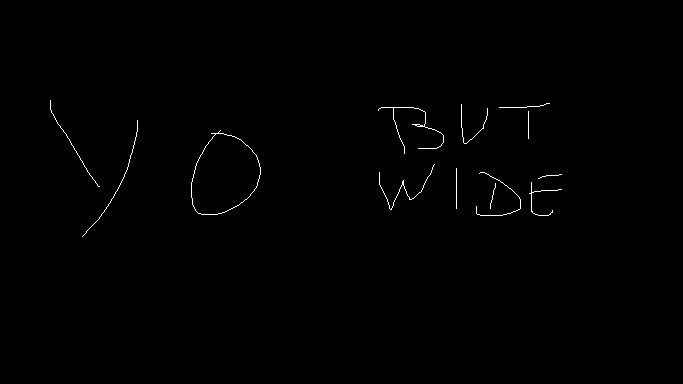 YO
BUT
WIDE